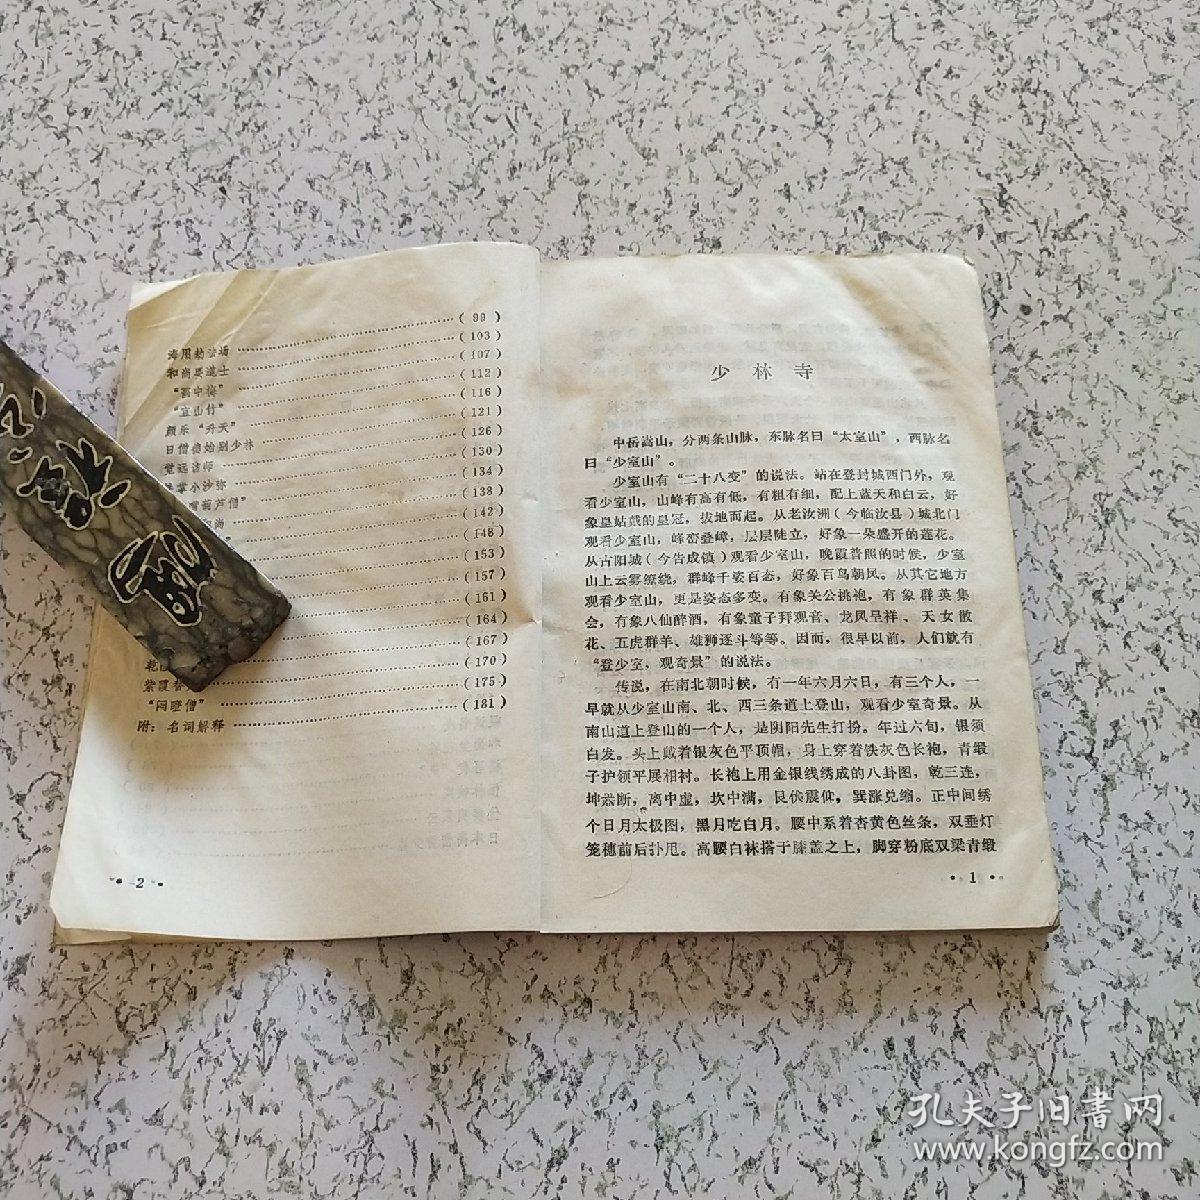 (99)
海用劫法场 (103)
和尚娶道士 (107)
“画中梅” (112)
“宜山竹” (116)
颜乐“升天” (121)
日僧梅始别少林 (126)
觉远访师 (130)
掌小沙弥 (134)
葫芦僧” (138)
和尚 (142)
(148)
(153)
(157)
(161)
(164)
(167)
乾 (170)
紫霞 (175)
“闷噔僧” (181)
附：名词解释
• 2 •
少林寺
中岳嵩山，分两条山脉，东脉名曰“太室山”，西脉名
曰“少室山”。
少室山有“二十八变”的说法。站在登封城西门外，观
看少室山，山峰有高有低，有粗有细，配上蓝天和白云，好
象皇姑戴的皇冠，拔地而起。从老汝洲（今临汝县）城北门
观看少室山，峰峦叠嶂，层层陡立，好象一朵盛开的莲花。
从古阳城（今告成镇）观看少室山，晚霞普照的时候，少室
山上云雾缭绕，群峰千姿百态，好象百鸟朝凤。从其它地方
观看少室山，更是姿态多变。有象关公挑袍，有象群英集
会，有象八仙醉酒，有象童子拜观音、龙凤呈祥、天女散
花、五虎群羊、雄狮逐斗等等。因而，很早以前，人们就有
“登少室，观奇景”的说法。
传说，在南北朝时候，有一年六月六日，有三个人，一
早就从少室山南、北、西三条道上登山，观看少室奇景。从
南山道上登山的一个人，是阴阳先生打扮。年过六旬，银须
白发。头上戴着银灰色平顶帽，身上穿着铁灰色长袍，青缎
子护领平展相衬。长袍上用金银线绣成的八卦图，乾三连，
坤六断，离中虚，坎中满，艮伏震仰，巽涨兑缩。正中间绣
个日月太极图，黑月吃白月。腰中系着杏黄色丝条，双垂灯
笼穗前后扑甩。高腰白袜搭于膝盖之上，脚穿粉底双梁青缎
• 1 •
孔夫子旧书网
www.kongfz.com